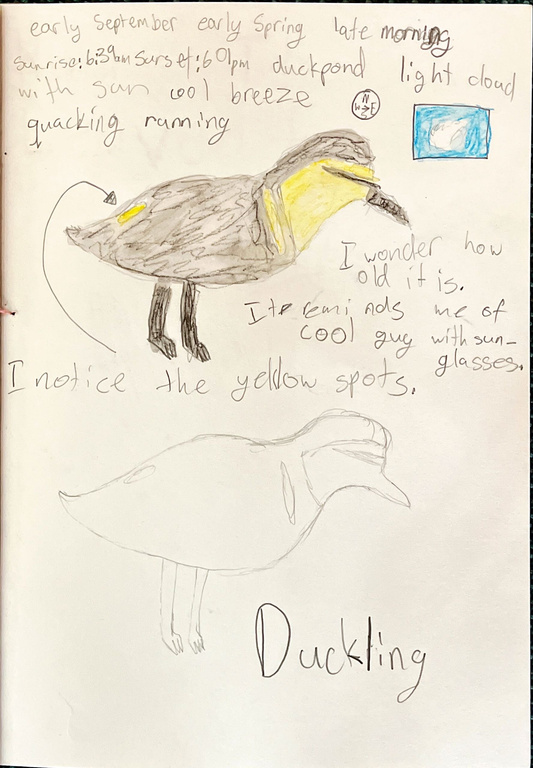 early September early Spring late morning
sunrise: 6:39am Sunset: 6:01pm duckpond light cloud
with sun cool breeze
quacking running
N
W E
S
I wonder how
old it is.
It reminds me of
cool guy with sun-
glasses.
I notice the yellow spots.
Duckling